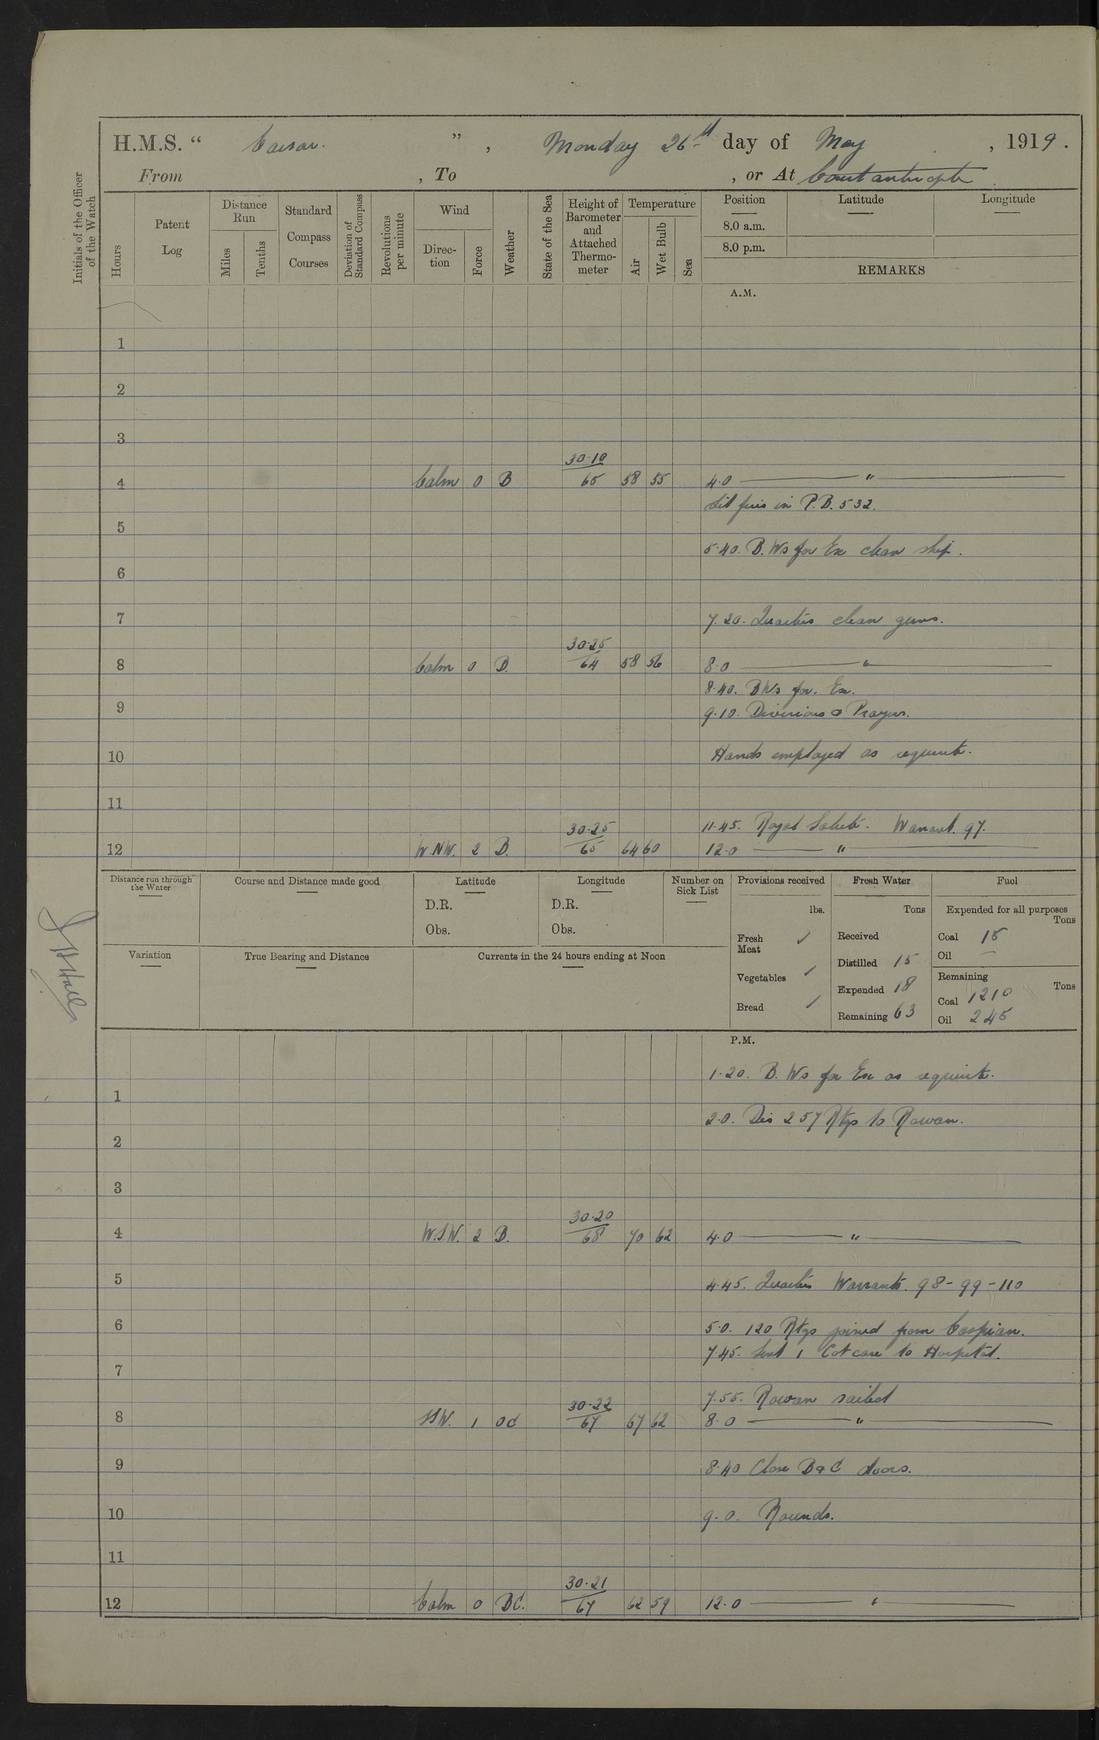 H.M.S. “ Caesar. ” , Monday 26th day of May , 1919.
From , To , or At Constantinople
Initials of the Officer of the Watch
Hours
Patent Log
Distance Run
Miles
Tenths
Standard Compass Courses
Deviation of Standard Compass
Revolutions per minute
Wind
Direction
Force
Weather
State of the Sea
Height of Barometer and Attached Thermometer
Temperature
Air
Wet Bulb
Sea
Position Latitude Longitude
8.0 a.m.
8.0 p.m.
REMARKS
A.M.
1
2
3
4 Calm 0 B 30·10 65 58 55 4·0 "
Lit fires in P.B. 532.
5
5·40. B.Ws for Ex clean ship.
6
7
7.20. Quarters clean guns.
8 Calm 0 B. 30·25 64 58 56 8·0 "
8·40. BWs for. Ex.
9
9·10. Divisions & Prayers.
10 Hands employed as requisite.
11
11·45. Royal Salute. Warrant. 97.
12 W.NW. 2 B. 30·25 65 64 60 12·0 "
Distance run through the Water
Course and Distance made good
Latitude
D.R.
Obs.
Longitude
D.R.
Obs.
Number on Sick List
Provisions received
lbs.
Fresh Meat ✓
Vegetables ✓
Bread ✓
Fresh Water
Tons
Received
Distilled 15
Expended 18
Remaining 63
Fuel
Expended for all purposes
Tons
Coal 15
Oil –
Remaining
Tons
Coal 1210
Oil 245
Variation
True Bearing and Distance
Currents in the 24 hours ending at Noon
J H Hall
P.M.
1·20. B. Ws for Ex as requisite.
1
2·0. Dis 257 Rtgs to Rowan.
2
3
4 W.S.W. 2 B. 30·20 68 70 62 4·0 "
5 4·45. Quarters Warrants. 98-99-110
6 5·0. 120 Rtgs joined from Caspian.
7·45. Sent 1 Cot case to Hospital.
7
7·55. Rowan sailed
8 SSW. 1 OC 30·22 67 67 62 8·0 "
9 8·40 Close B & C doors.
10 9·0. Rounds.
11
12 Calm 0 BC. 30·21 67 62 59 12·0 "